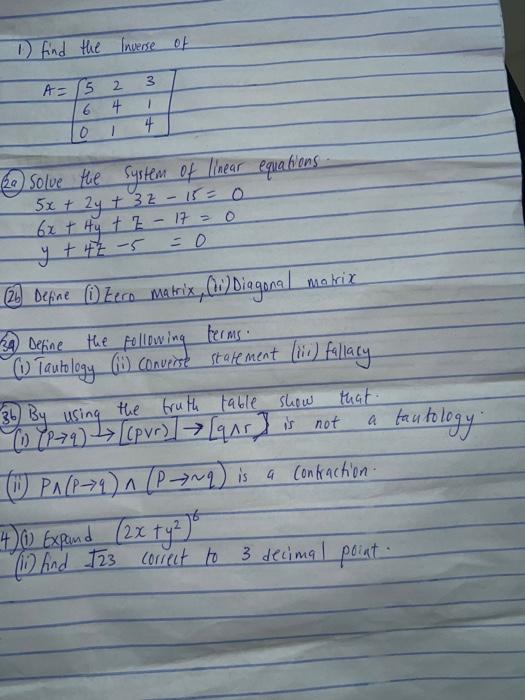 1) find the Inverse of
A = [5 2 3
6 4 1
0 1 4]
2a) Solve the system of linear equations.
5x + 2y + 3z - 15 = 0
6x + 4y + z - 17 = 0
y + 4z - 5 = 0
2b) Define (i) Zero matrix, (ii) Diagonal matrix
3a) Define the following terms.
(i) Tautology (ii) converse statement (iii) fallacy
3b) By using the truth table show that.
(i) (P→q) → [(pvr)] → [q∧r] is not a tautology.
(ii) P∧(P→q) ∧ (P→~q) is a contraction.
4) (i) Expand (2x + y²)⁶
(ii) find √23 correct to 3 decimal point.